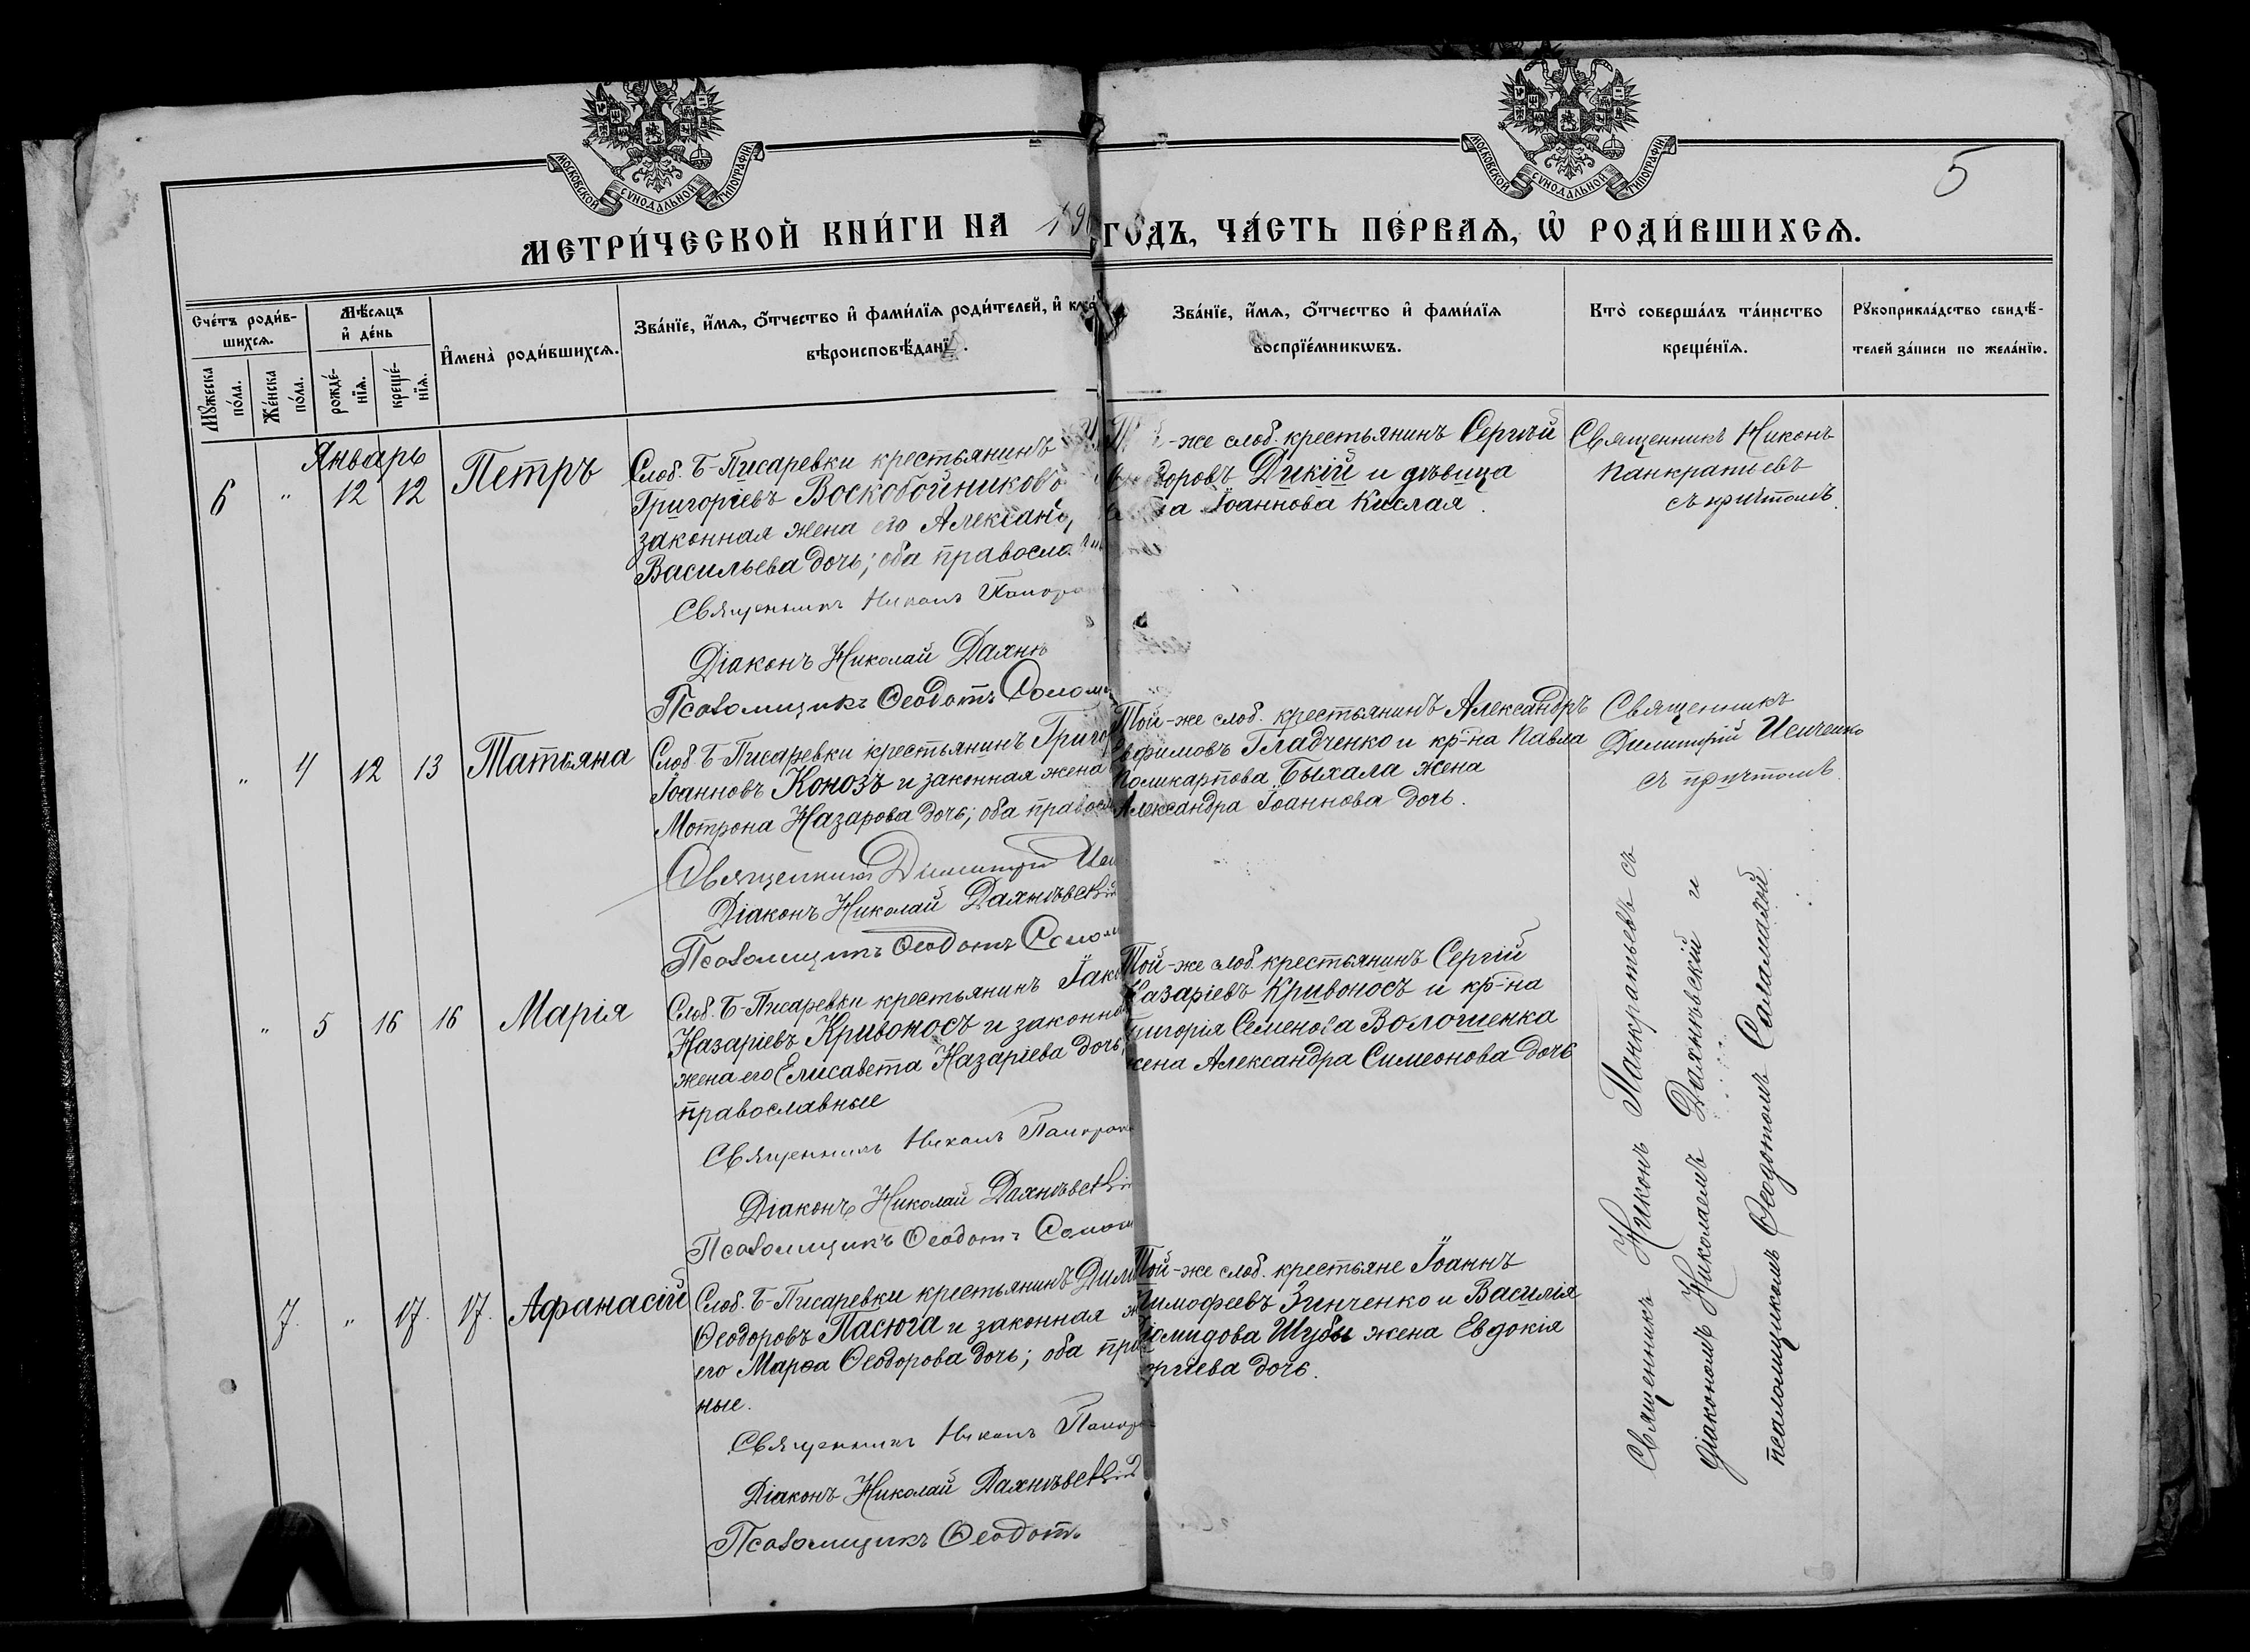 МОСКОВСКОЙ СѴНОДАЛЬНОЙ ТИПОГРАФІИ
МОСКОВСКОЙ СѴНОДАЛЬНОЙ ТИПОГРАФІИ
5
МЕТРИ́ЧЕСКОЙ КНИ́ГИ НА 19
ГО́ДЪ, ЧА́СТЬ ПЕ́РВАѦ, Ѡ҆ РОДИ́ВШИХСѦ.
Сче́тъ роди́в-
шихсѧ.
Мꙋ́жеска по́ла.
Же́нска по́ла.
Мѣ́сѧцъ и҆ де́нь
рожде́-нїѧ.
креще́-нїѧ.
И҆мена̀ роди́вшихсѧ.
Зва́нїе, и҆́мѧ, ѻ҆́тчество и҆ фами́лїѧ роди́телей, и҆
вѣроисповѣ́данї
Зва́нїе, и҆́мѧ, ѻ҆́тчество и҆ фами́лїѧ
воспрїе́мникѡвъ.
Кто̀ соверша́лъ та́инство
креще́нїѧ.
Рꙋкоприкла́дство свидѣ́-
телей за́писи по жела́нїю.
Январь
6 " 12 12 Петръ
Слоб. Б-Писаревки крестьянинъ
Григоріевъ Воскобойниковъ
законная жена его Алексан
Васильева дочь; оба правосла
Священникъ Никонъ Панкра
Діаконъ Николай Дахнѣ
Псаломщикъ Ѳеодотъ Солом
-же слоб. крестьянинъ Сергій
доровъ Дикій и дѣвица
на Іоаннова Кислая.
Священникъ Никонъ
Панкратьевъ
съ причтомъ.
" 4 12 13 Татьяна
Слоб. Б-Писаревки крестьянинъ Григо
Іоанновъ Конозъ и законная жена
Мотрона Назарова дочь; оба правосл
Священникъ Димитрій
Діаконъ Николай Дахнѣвскій
Псаломщикъ Ѳеодотъ Солом
Той-же слоб. крестьянинъ Александръ
Ефимовъ Гладченко и кр-на Павла
Поликарпова Быхала жена
Александра Іоаннова дочь.
Священникъ
Димитрій Иенченко
съ причтомъ.
" 5 16 16 Марія
Слоб. Б-Писаревки крестьянинъ Іако
Назаріевъ Кривоносъ и законна
жена его Елисавета Назаріева дочь;
православные
Священникъ Никонъ Панкрат
Діаконъ Николай Дахнѣвскій
Псаломщикъ Ѳеодотъ Солом
Той-же слоб. крестьянинъ Сергій
Назаріевъ Кривоносъ и кр-на
Григорія Семенова Волошенка
жена Александра Симеонова дочь
7. " 17. 17. Аѳанасій
Слоб. Б-Писаревки крестьянинъ Дим
Ѳеодоровъ Пасюга и законная ж
его Марѳа Ѳеодорова дочь; оба пра
ные.
Священникъ Никонъ Панкра
Діаконъ Николай Дахнѣвскій
Псаломщикъ Ѳеодотъ
Той-же слоб. крестьяне Іоаннъ
Тимофеевъ Зинченко и Василія
Діомидова Шубы жена Евдокія
ргіева дочь.
Священникъ Никонъ Панкратьевъ съ
діакономъ Николаемъ Дахнѣвскій и
псаломщикомъ Ѳеодотомъ Саламахой.